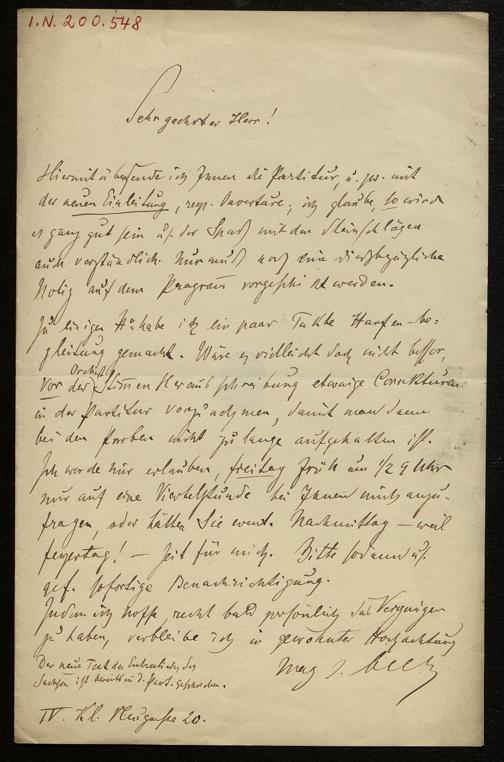 I.N. 200.548
Sehr geehrter Herr!
Hiermit übersende ich Ihnen die Partitur, u. zw. mit
der neuen Einleitung, resp. Ouverture; ich glaube, so wird
es ganz gut sein u. der Spaß mit den Steinschlägen
auch verständlich. Nur muß noch eine diesbezügliche
Notiz auf dem Program vorgeschickt werden.
Zu einigen habe ich ein paar Takte Harfen-be-
gleitung gemacht. Wäre es vielleicht doch nicht besser,
vor der Orchester Stimmen Herausschreibung etwaige Correkturen
in der Partitur vorzunehmen, damit man dann
bei den Proben nicht zu lange aufgehalten ist.
Ich werde mir erlauben, freitag früh um 1/2 9 Uhr
nur auf eine Viertelstunde bei Ihnen mich anzu-
fragen, oder hätten Sie event. Nachmittag — weil
feyertag! — Zeit für mich. Bitte sodann
gef. sofortige Benachrichtigung.
Indem ich hoffe, recht bald persönlich das Vergnügen
zu haben, verbleibe ich in gewohnter Hochachtung
Der neue Text des
ist bereits in d. Part. geschrieben.
IV. Kl. Neugasse 20.